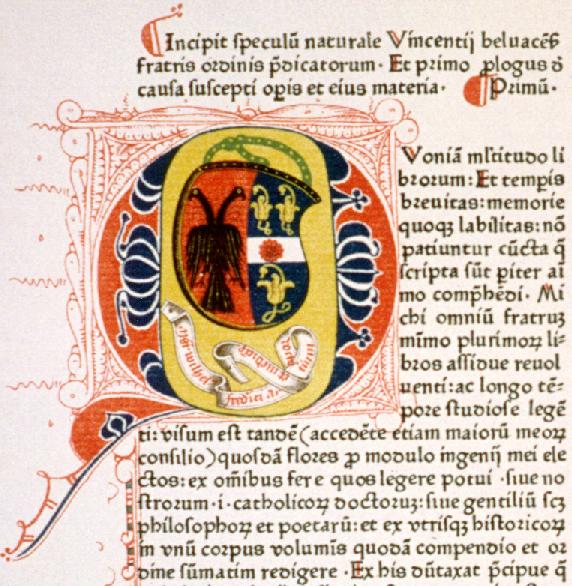 Incipit speculū naturale Vincentij beluaceñ
fratris ordinis p̄dicatorum · Et primo ꝓlogus ð
causa suscepti opis et eius materia · Primū ·
Voniā mltitudo li
brorum: Et tempis
breuitas: memorie
quoqꝫ labilitas: nō
patiuntur cūcta q̄
scripta sūt piter ai
mo comp̄hēdi · Mi
chi omniū fratruꝫ
mīmo plurimoꝝ li⸗
bros assidue reuol
uenti: ac longo tē⸗
pore studiose legē
ti: visum est tandē (accedēte etiam maiorū meoꝝ
consilio) quosdā flores ꝓ modulo ingenij mei ele
ctos: ex om̄ibus fere quos legere potui · siue no
strorum · i · catholicoꝝ doctoruꝫ: siue gentiliū scꝫ
philosophoꝝ et poetarū: et ex vtrisqꝫ historicoꝝ
in vnū corpus volumīs quodā compendio et or
dine sūmatim redigere · Ex his dūtaxat p̄cipue q̄